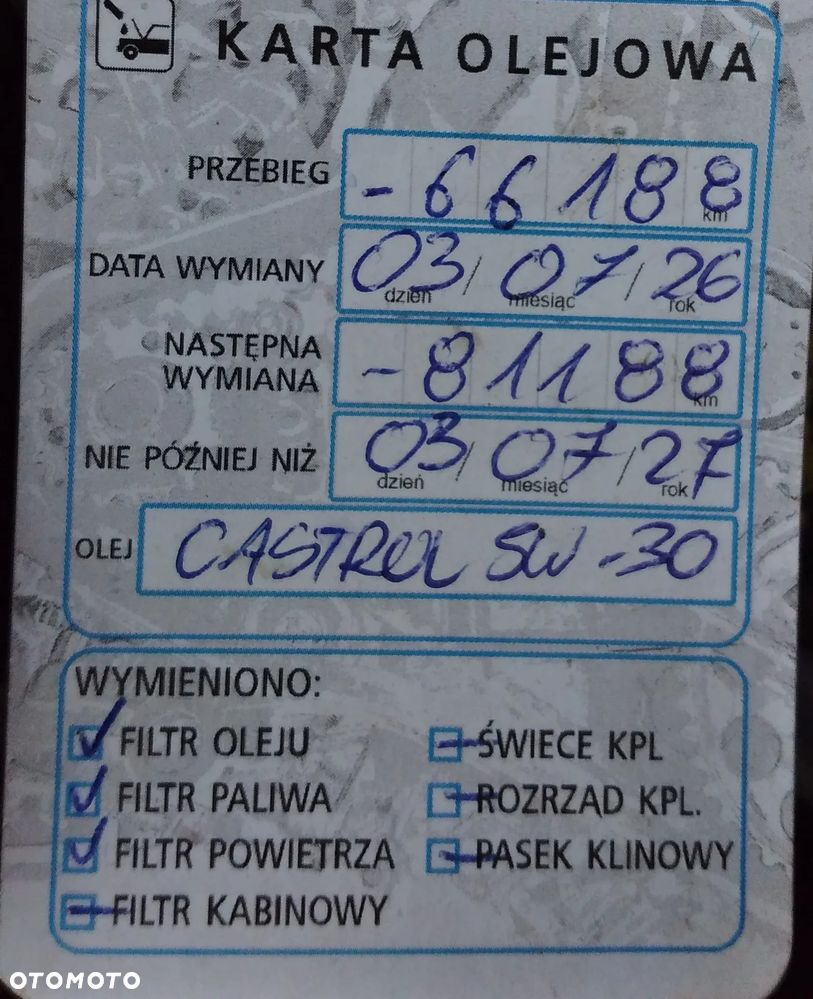 KARTA OLEJOWA
PRZEBIEG - 6 6 1 8 8 km
DATA WYMIANY 03 / 07 / 26
dzień miesiąc rok
NASTĘPNA
WYMIANA - 8 1 1 8 8 km
NIE PÓŹNIEJ NIŻ 03 / 07 / 27
dzień miesiąc rok
OLEJ CASTROL 5W-30
WYMIENIONO:
FILTR OLEJU
FILTR PALIWA
FILTR POWIETRZA
FILTR KABINOWY
ŚWIECE KPL
ROZRZĄD KPL.
PASEK KLINOWY
OTOMOTO